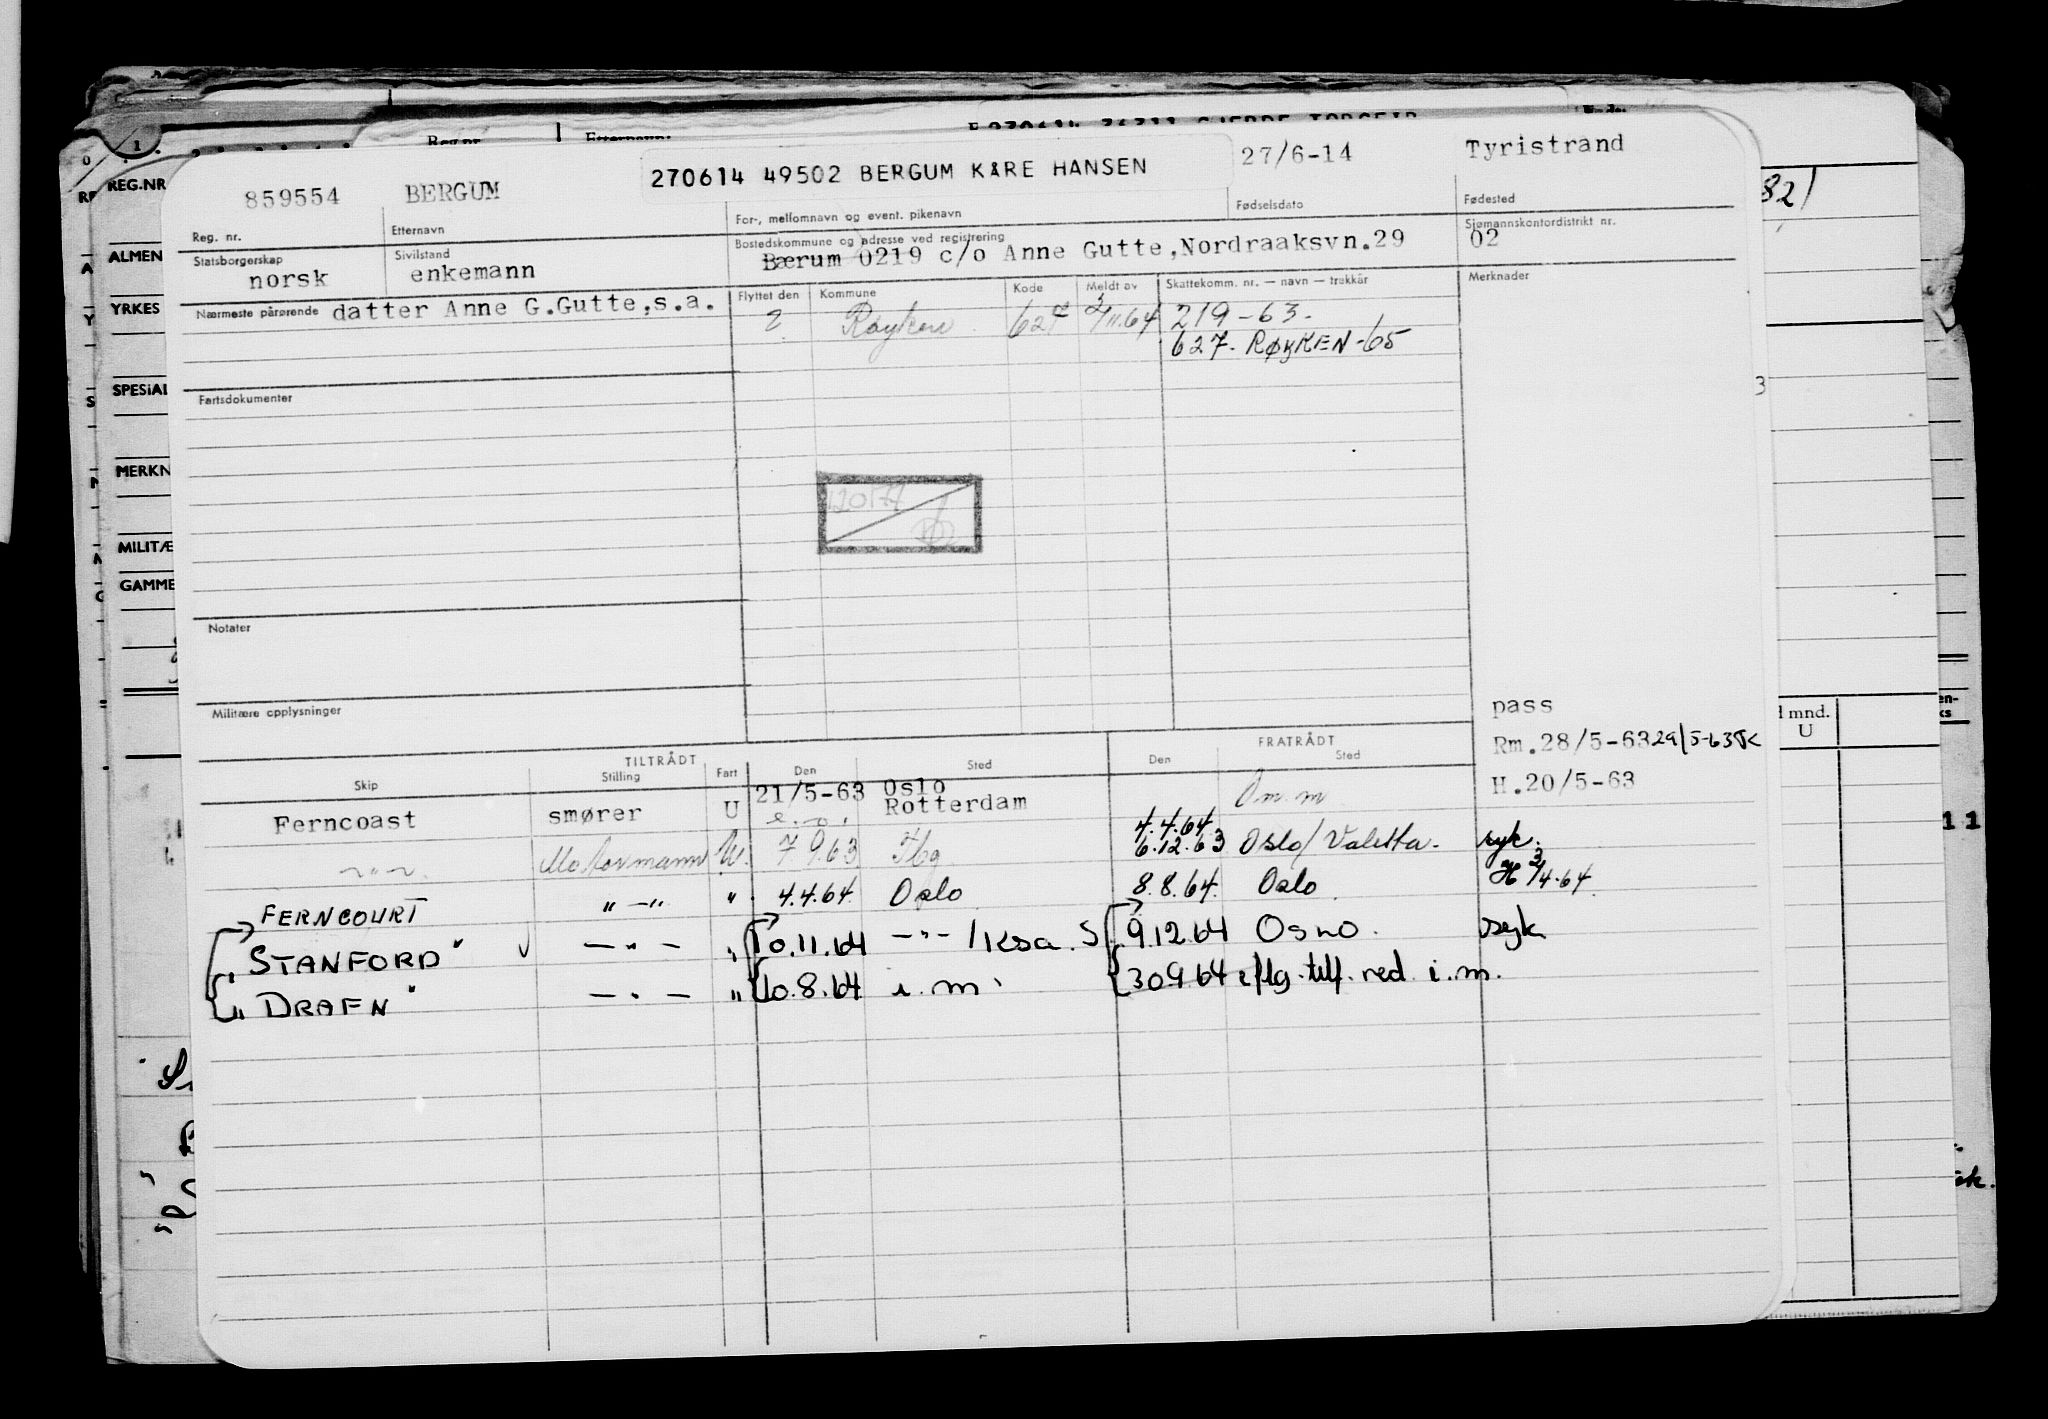 REG.NR
ALMEN
YRKES
SPESIAL
MERKN
MILITÆ
GAMME
Etternavn:
82/
d mnd.
U
11
859554 BERGUM 270614 49502 BERGUM KÅRE HANSEN 27/6-14 Tyristrand
Reg. nr. Etternavn For-, mellomnavn og event. pikenavn Fødselsdato Fødested
Statsborgerskap Sivilstand Bostedskommune og adresse ved registrering Sjømannskontordistrikt nr.
norsk enkemann Bærum 0219 c/o Anne Gutte,Nordraaksvn.29 02
Nærmeste pårørende datter Anne G.Gutte,s.a. Flyttet den Kommune Kode Meldt av Skattekomm. nr. — navn — trekkår Merknader
? Røyken 627 3/11.64 219-63.
627. RØYKEN-65
Fartsdokumenter
Notater
Militære opplysninger
pass
Rm.28/5-63 29/5-63
H.20/5-63
TILTRÅDT FRATRÅDT
Skip Stilling Fart Den Sted Den Sted
Ferncoast smører U 21/5-63 Oslo
Rotterdam Om. m
e. o.
4.4.64
-"- Motormann U. 7 9.63 Hbg 6.12.63 Oslo/Valetta. syk.
FERNCOURT "-" " 4.4.64 Oslo 8.8.64. Oslo. H 3/4.64.
"STANFORD" -"- " 10.11.64 -"- 9.12.64 Oslo. syk
"DRAFN" -"- " 10.8.64 i. m. 30.9.64 eflg. tlf. red. i. m.